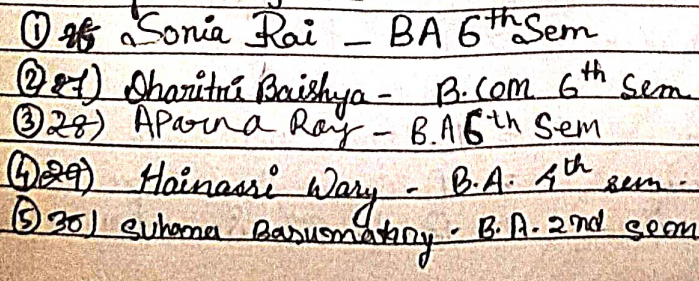 ① Sonia Rai – BA 6th Sem
② 27) Dharitri Baishya – B.Com 6th Sem
③ 28) Aparna Roy – B.A 6th Sem
④ 29) Hainasri Wary - B.A. 4th sem.
⑤ 30) Suhama Basumatary - B.A. 2nd Seem